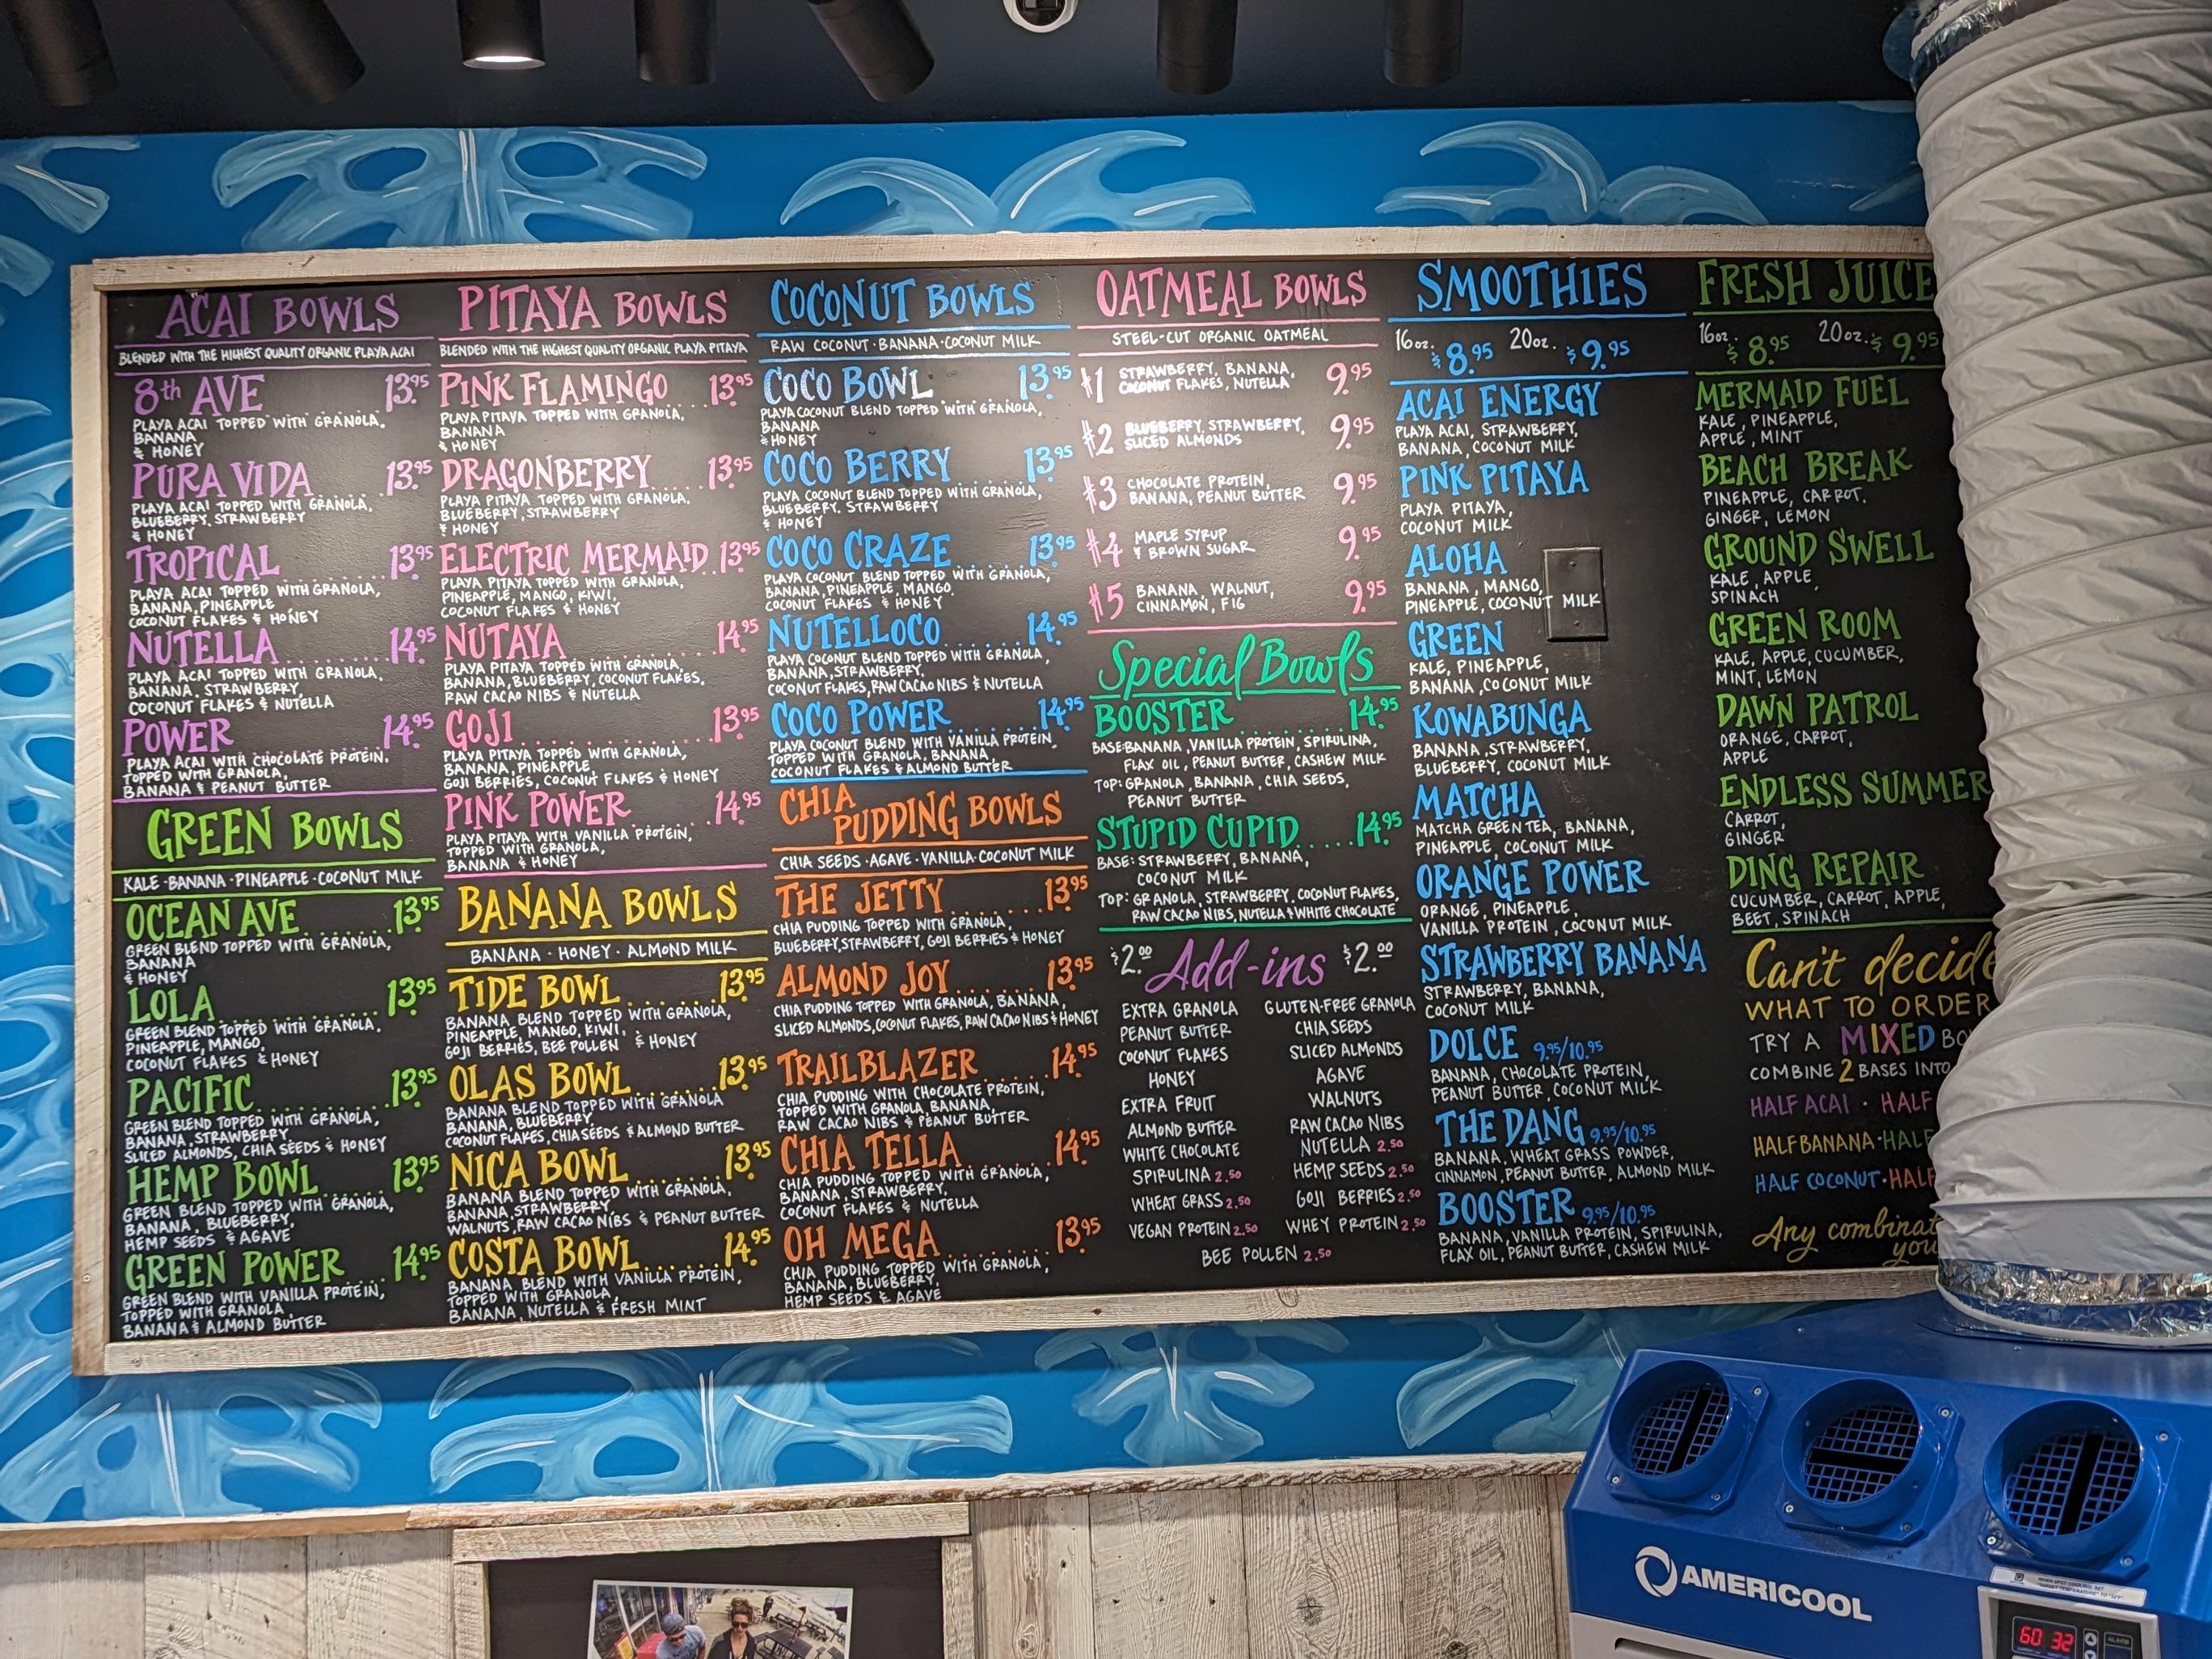 ACAI BOWLS
BLENDED WITH THE HIGHEST QUALITY ORGANIC PLAYA ACAI
8th AVE 13.95
PLAYA ACAI TOPPED WITH GRANOLA,
BANANA
& HONEY
PURA VIDA........13.95
PLAYA ACAI TOPPED WITH GRANOLA,
BLUEBERRY, STRAWBERRY
& HONEY
TROPICAL..........13.95
PLAYA ACAI TOPPED WITH GRANOLA,
BANANA, PINEAPPLE
COCONUT FLAKES & HONEY
NUTELLA..........14.95
PLAYA ACAI TOPPED WITH GRANOLA,
BANANA, STRAWBERRY,
COCONUT FLAKES & NUTELLA
POWER 14.95
PLAYA ACAI WITH CHOCOLATE PROTEIN,
TOPPED WITH GRANOLA,
BANANA & PEANUT BUTTER
GREEN BOWLS
KALE · BANANA · PINEAPPLE · COCONUT MILK
OCEAN AVE.......13.95
GREEN BLEND TOPPED WITH GRANOLA,
BANANA
& HONEY
LOLA..............13.95
GREEN BLEND TOPPED WITH GRANOLA,
PINEAPPLE, MANGO,
COCONUT FLAKES & HONEY
PACIFIC..........13.95
GREEN BLEND TOPPED WITH GRANOLA,
BANANA, STRAWBERRY
SLICED ALMONDS, CHIA SEEDS & HONEY
HEMP BOWL......13.95
GREEN BLEND TOPPED WITH GRANOLA,
BANANA, BLUEBERRY,
HEMP SEEDS & AGAVE
GREEN POWER....14.95
GREEN BLEND WITH VANILLA PROTEIN,
TOPPED WITH GRANOLA,
BANANA & ALMOND BUTTER
PITAYA BOWLS
BLENDED WITH THE HIGHEST QUALITY ORGANIC PLAYA PITAYA
PINK FLAMINGO....13.95
PLAYA PITAYA TOPPED WITH GRANOLA,
BANANA
& HONEY
DRAGONBERRY......13.95
PLAYA PITAYA TOPPED WITH GRANOLA,
BLUEBERRY, STRAWBERRY
& HONEY
ELECTRIC MERMAID.13.95
PLAYA PITAYA TOPPED WITH GRANOLA,
PINEAPPLE, MANGO, KIWI,
COCONUT FLAKES & HONEY
NUTAYA............14.95
PLAYA PITAYA TOPPED WITH GRANOLA,
BANANA, BLUEBERRY, COCONUT FLAKES,
RAW CACAO NIBS & NUTELLA
GOJI...............13.95
PLAYA PITAYA TOPPED WITH GRANOLA,
BANANA, PINEAPPLE
GOJI BERRIES, COCONUT FLAKES & HONEY
PINK POWER.......14.95
PLAYA PITAYA WITH VANILLA PROTEIN,
TOPPED WITH GRANOLA,
BANANA & HONEY
BANANA BOWLS
BANANA · HONEY · ALMOND MILK
TIDE BOWL.......13.95
BANANA BLEND TOPPED WITH GRANOLA,
PINEAPPLE, MANGO, KIWI,
GOJI BERRIES, BEE POLLEN & HONEY
OLAS BOWL.......13.95
BANANA BLEND TOPPED WITH GRANOLA
BANANA, BLUEBERRY,
COCONUT FLAKES, CHIA SEEDS & ALMOND BUTTER
NICA BOWL.......13.95
BANANA BLEND TOPPED WITH GRANOLA,
BANANA, STRAWBERRY
WALNUTS, RAW CACAO NIBS & PEANUT BUTTER
COSTA BOWL......14.95
BANANA BLEND WITH VANILLA PROTEIN,
TOPPED WITH GRANOLA,
BANANA, NUTELLA & FRESH MINT
COCONUT BOWLS
RAW COCONUT · BANANA · COCONUT MILK
COCO BOWL 13.95
PLAYA COCONUT BLEND TOPPED WITH GRANOLA,
BANANA
& HONEY
COCO BERRY......13.95
PLAYA COCONUT BLEND TOPPED WITH GRANOLA,
BLUEBERRY, STRAWBERRY
& HONEY
COCO CRAZE......13.95
PLAYA COCONUT BLEND TOPPED WITH GRANOLA,
BANANA, PINEAPPLE, MANGO,
COCONUT FLAKES & HONEY
NUTELLOCO.......14.95
PLAYA COCONUT BLEND TOPPED WITH GRANOLA,
BANANA, STRAWBERRY,
COCONUT FLAKES, RAW CACAO NIBS & NUTELLA
COCO POWER......14.95
PLAYA COCONUT BLEND WITH VANILLA PROTEIN
TOPPED WITH GRANOLA, BANANA,
COCONUT FLAKES & ALMOND BUTTER
CHIA
PUDDING BOWLS
CHIA SEEDS · AGAVE · VANILLA · COCONUT MILK
THE JETTY.......13.95
CHIA PUDDING TOPPED WITH GRANOLA,
BLUEBERRY, STRAWBERRY, GOJI BERRIES & HONEY
ALMOND JOY......13.95
CHIA PUDDING TOPPED WITH GRANOLA, BANANA,
SLICED ALMONDS, COCONUT FLAKES, RAW CACAO NIBS & HONEY
TRAILBLAZER.....14.95
CHIA PUDDING WITH CHOCOLATE PROTEIN,
TOPPED WITH GRANOLA, BANANA,
RAW CACAO NIBS & PEANUT BUTTER
CHIA TELLA......14.95
CHIA PUDDING TOPPED WITH GRANOLA,
BANANA, STRAWBERRY,
COCONUT FLAKES & NUTELLA
OH MEGA.........13.95
CHIA PUDDING TOPPED WITH GRANOLA,
BANANA, BLUEBERRY,
HEMP SEEDS & AGAVE
OATMEAL BOWLS
STEEL-CUT ORGANIC OATMEAL
#1 STRAWBERRY, BANANA, 9.95
COCONUT FLAKES, NUTELLA
#2 BLUEBERRY, STRAWBERRY, 9.95
SLICED ALMONDS
#3 CHOCOLATE PROTEIN, 9.95
BANANA, PEANUT BUTTER
#4 MAPLE SYRUP 9.95
& BROWN SUGAR
#5 BANANA, WALNUT, 9.95
CINNAMON, FIG
Special Bowls
BOOSTER.........14.95
BASE: BANANA, VANILLA PROTEIN, SPIRULINA,
FLAX OIL, PEANUT BUTTER, CASHEW MILK
TOP: GRANOLA, BANANA, CHIA SEEDS,
PEANUT BUTTER
STUPID CUPID.....14.95
BASE: STRAWBERRY, BANANA,
COCONUT MILK
TOP: GRANOLA, STRAWBERRY, COCONUT FLAKES,
RAW CACAO NIBS, NUTELLA & WHITE CHOCOLATE
$2.00 Add-ins $2.00
EXTRA GRANOLA GLUTEN-FREE GRANOLA
PEANUT BUTTER CHIA SEEDS
COCONUT FLAKES SLICED ALMONDS
HONEY AGAVE
EXTRA FRUIT WALNUTS
ALMOND BUTTER RAW CACAO NIBS
WHITE CHOCOLATE NUTELLA 2.50
SPIRULINA 2.50 HEMP SEEDS 2.50
WHEAT GRASS 2.50 GOJI BERRIES 2.50
VEGAN PROTEIN 2.50 WHEY PROTEIN 2.50
BEE POLLEN 2.50
SMOOTHIES
16oz. $8.95 20oz. $9.95
ACAI ENERGY
PLAYA ACAI, STRAWBERRY,
BANANA, COCONUT MILK
PINK PITAYA
PLAYA PITAYA,
COCONUT MILK
ALOHA
BANANA, MANGO,
PINEAPPLE, COCONUT MILK
GREEN
KALE, PINEAPPLE,
BANANA, COCONUT MILK
KOWABUNGA
BANANA, STRAWBERRY,
BLUEBERRY, COCONUT MILK
MATCHA
MATCHA GREEN TEA, BANANA,
PINEAPPLE, COCONUT MILK
ORANGE POWER
ORANGE, PINEAPPLE,
VANILLA PROTEIN, COCONUT MILK
STRAWBERRY BANANA
STRAWBERRY, BANANA,
COCONUT MILK
DOLCE 9.95/10.95
BANANA, CHOCOLATE PROTEIN,
PEANUT BUTTER, COCONUT MILK
THE DANG 9.95/10.95
BANANA, WHEAT GRASS POWDER,
CINNAMON, PEANUT BUTTER, ALMOND MILK
BOOSTER 9.95/10.95
BANANA, VANILLA PROTEIN, SPIRULINA,
FLAX OIL, PEANUT BUTTER, CASHEW MILK
FRESH JUICE
16oz. $8.95 20oz. $9.95
MERMAID FUEL
KALE, PINEAPPLE,
APPLE, MINT
BEACH BREAK
PINEAPPLE, CARROT,
GINGER, LEMON
GROUND SWELL
KALE, APPLE,
SPINACH
GREEN ROOM
KALE, APPLE, CUCUMBER,
MINT, LEMON
DAWN PATROL
ORANGE, CARROT,
APPLE
ENDLESS SUMMER
CARROT,
GINGER
DING REPAIR
CUCUMBER, CARROT, APPLE,
BEET, SPINACH
Can't decide
WHAT TO ORDER
TRY A MIXED BO
COMBINE 2 BASES INTO
HALF ACAI · HALF
HALF BANANA · HALF
HALF COCONUT · HALF
Any combinat
you
AMERICOOL
60 32
ALARM